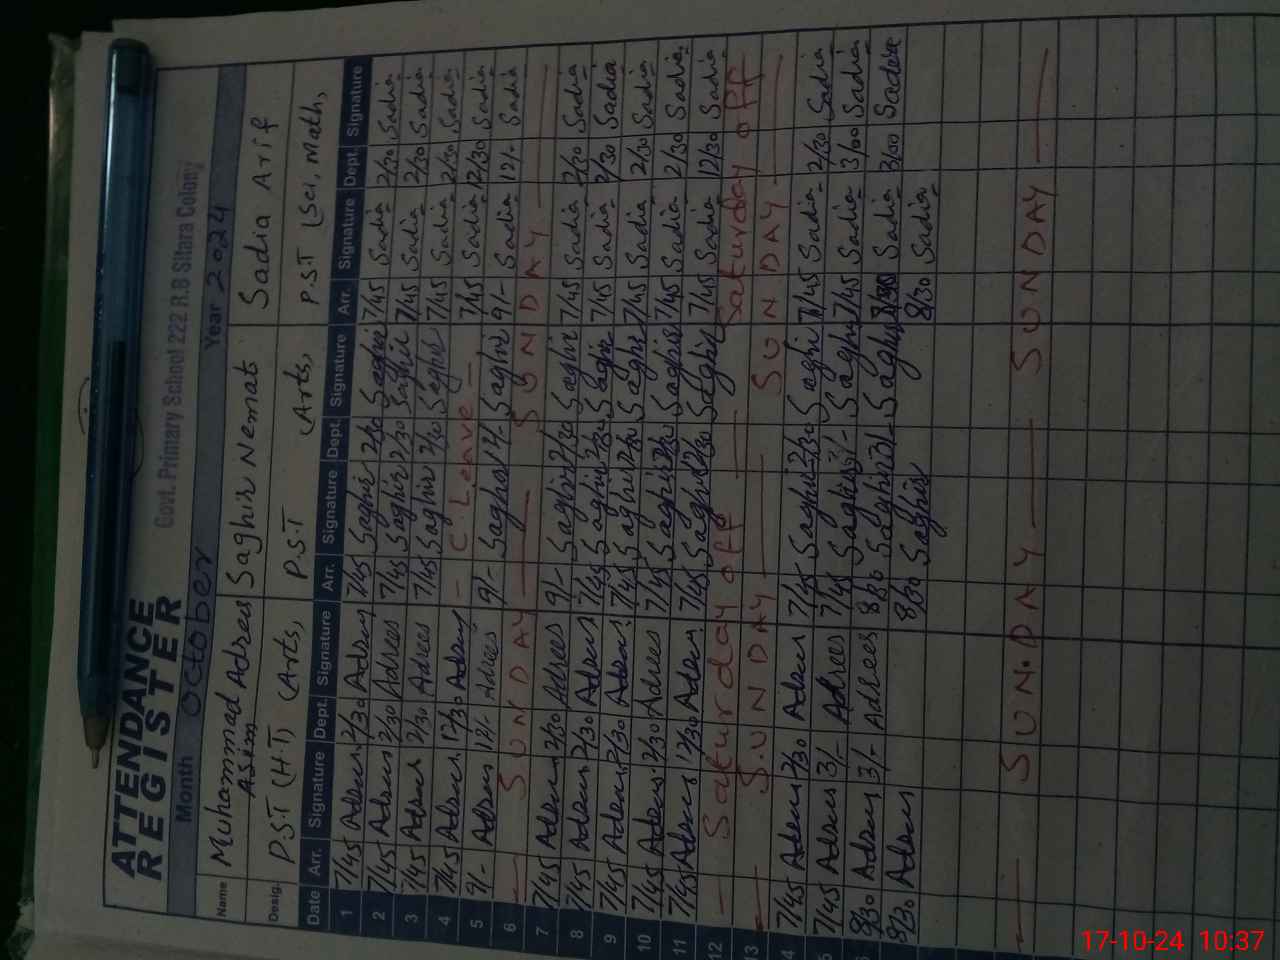 ATTENDANCE
REGISTER
Govt. Primary School 222 R.B Sitara Colony
Month October Year 2024
Name Muhammad Adrees Saghir Nemat Sadia Arif
Asim
Desig. P.S.T (H.T), (Arts, P.S.T (Arts, P.S.T (Sci, Math,
Date Arr. Signature Dept. Signature Arr. Signature Dept. Signature Arr. Signature Dept. Signature
1 7/45 Adrees 2/30 Adrees 7/45 Saghir 2/30 Saghir 7/45 Sadia 2/30 Sadia
2 7/45 Adrees 2/30 Adrees 7/45 Saghir 2/30 Saghir 7/45 Sadia 2/30 Sadia
3 7/45 Adrees 2/30 Adrees 7/45 Saghir 2/30 Saghir 7/45 Sadia 2/30 Sadia
4 7/45 Adrees 12/30 Adrees - C Leave - 7/45 Sadia 12/30 Sadia
5 9/- Adrees 12/- Adrees 9/- Saghir 12/- Saghir 9/- Sadia 12/- Sadia
6 SUNDAY SUNDAY
7 7/45 Adrees 2/30 Adrees 9/- Saghir 2/30 Saghir 7/45 Sadia 2/30 Sadia
8 7/45 Adrees 2/30 Adrees 7/45 Saghir 2/30 Saghir 7/45 Sadia 2/30 Sadia
9 7/45 Adrees 2/30 Adrees 7/45 Saghir 2/30 Saghir 7/45 Sadia 2/30 Sadia
10 7/45 Adrees 2/30 Adrees 7/45 Saghir 2/30 Saghir 7/45 Sadia 2/30 Sadia
11 7/45 Adrees 12/30 Adrees 7/45 Saghir 12/30 Saghir 7/45 Sadia 12/30 Sadia
12 Saturday off Saturday off
13 SUNDAY SUNDAY
4 7/45 Adrees 2/30 Adrees 7/45 Saghir 2/30 Saghir 7/45 Sadia 2/30 Sadia
5 7/45 Adrees 3/- Adrees 7/45 Saghir 3/- Saghir 7/45 Sadia 3/00 Sadia
8/30 Adrees 3/- Adrees Saghir 3/- Saghir Sadia 3/00 Sadia
8/30 Adrees 8/30 Saghir 8/30 Sadia
SUN.DAY SUNDAY
17-10-24 10:37